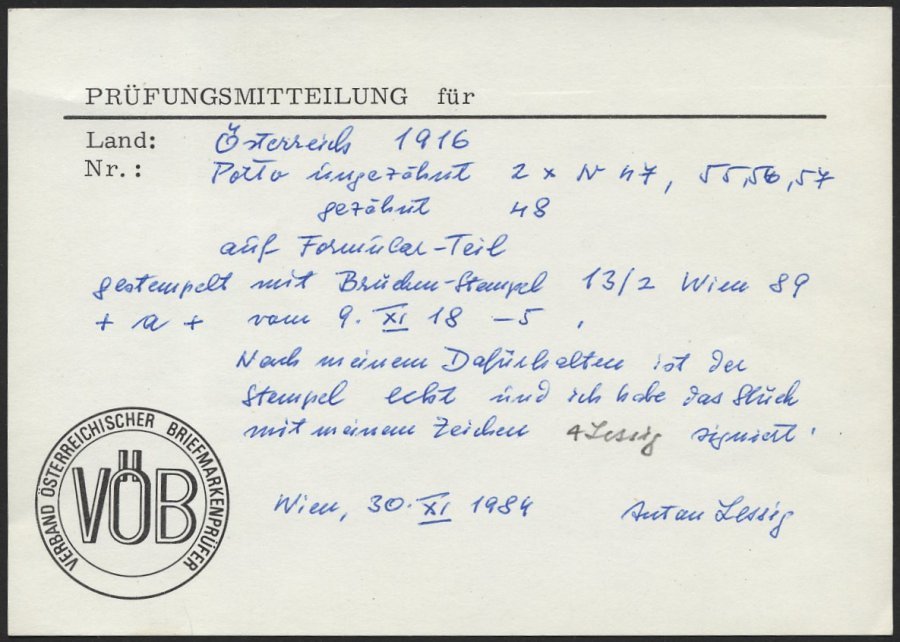 PRÜFUNGSMITTEILUNG für
Land: Österreich 1916
Nr.: Porto ungezähnt 2 x N 47, 55,56,57
gezähnt 48
auf Formular-Teil
gestempelt mit Brücken-Stempel 13/2 Wien 89
+ a + vom 9. XI 18 -5 ,
Nach meinem Dafürhalten ist der
Stempel echt und ich habe das Stück
mit meinem Zeichen A Lessig signiert.
Wien, 30. XI 1984 Anton Lessig
VERBAND ÖSTERREICHISCHER BRIEFMARKENPRÜFER
VÖB